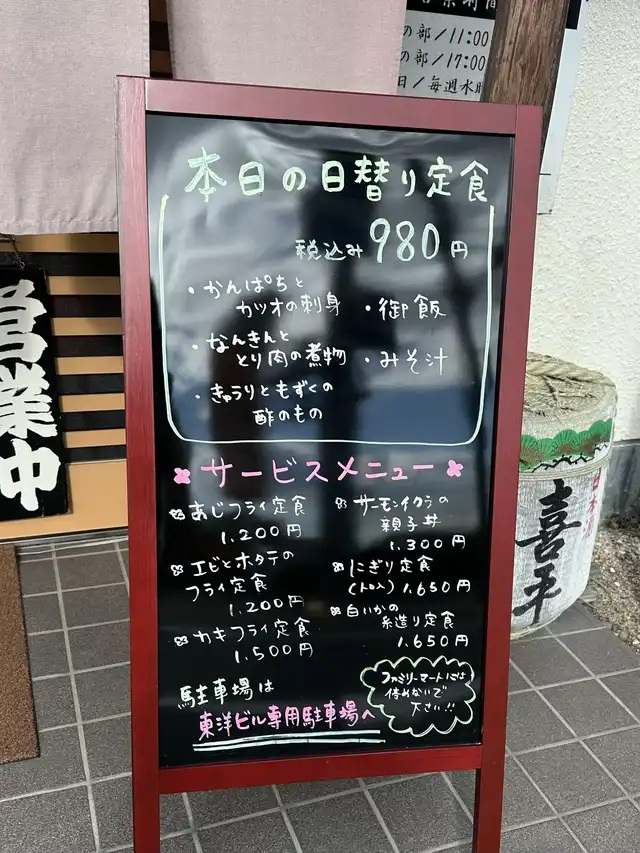 の部/11:00
の部/17:00
日/毎週水曜
営業中
本日の日替り定食
税込み980円
・かんぱちと
カツオの刺身
・なんきんと
とり肉の煮物
・きゅうりともずくの
酢のもの
・御飯
・みそ汁
サービスメニュー
あじフライ定食
1.200円
エビとホタテの
フライ定食
1.200円
カキフライ定食
1.500円
サーモンイクラの
親子丼
1.300円
にぎり定食
(トロ入) 1.650円
白いかの
糸造り定食
1.650円
駐車場は
東洋ビル専用駐車場へ
ファミリーマートには
停めないで
下さい!!
日本酒
喜平